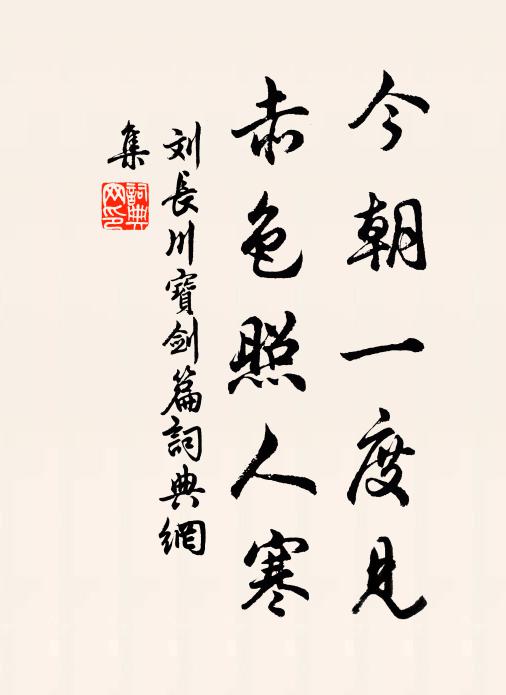 今朝一度見
赤色照人寒
刘長川寶劍篇詞典網
集
詞典网印